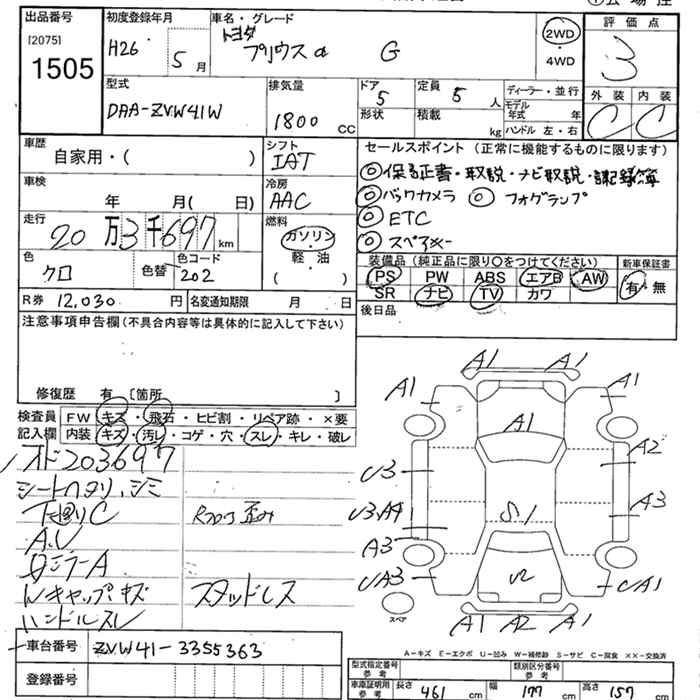 出品番号
[2075]
1505
初度登録年月
H26 5月
車名・グレード
トヨタ
プリウスα G
2WD
・
4WD
評価点
3
型式
DAA-ZVW41W
排気量
1800 CC
ドア
5
定員
5人
形状
積載
kg
ディーラー・並行
モデル年式 年
ハンドル 左・右
外装 内装
C C
車歴
自家用・( )
シフト
IAT
セールスポイント (正常に機能するものに限ります)
◎保証書・取説・ナビ取説・記録簿
◎バックカメラ ◎フォグランプ
◎ETC
◎スペアキー
車検
年 月( 日)
冷房
AAC
走行
20万3千697km
燃料
ガソリン
・
軽・油
( )
色
クロ
色替
色コード
202
装備品 (純正品に限り○をつけてください)
新車保証書
PS PW ABS エアB AW
有・無
SR ナビ TV カワ
R券 12,030円
名変通知期限 月 日
後日品
注意事項申告欄 (不具合内容等は具体的に記入して下さい)
修復歴 有 [箇所 ]
検査員記入欄
FW キズ・飛石・ヒビ割・リペア跡・×要
内装 キズ・汚レ・コゲ・穴・スレ・キレ・破レ
メーターオド203697
シートヘタリ、シミ
下廻りC
Rフロア歪み
A.U
ミラーA
Wキャップキズ スタッドレス
ハンドルスレ
A1 A1
A1 A1
A1
U3 A2
U3A4 A3
S1
A3
UA3 W CA1
スペア
A1 A2 A1
A-キズ E-エクボ U-凹み W-補修跡 S-サビ C-腐食 XX-交換済
車台番号 ZVW41-3355363
登録番号
型式指定番号
参考
類別区分番号
参考
車庫証明用
参考
長さ 461 cm
幅 177 cm
高さ 157 cm